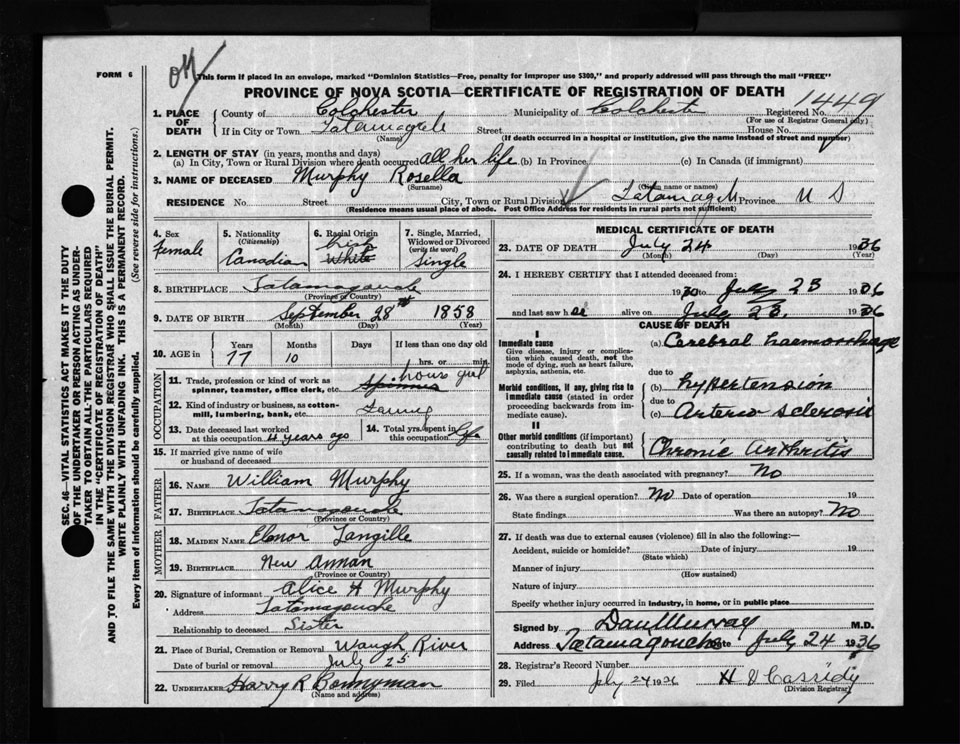 FORM 6
This form if placed in an envelope, marked "Dominion Statistics—Free, penalty for improper use $300," and properly addressed will pass through the mail "FREE"
PROVINCE OF NOVA SCOTIA—CERTIFICATE OF REGISTRATION OF DEATH
1. PLACE OF DEATH County of Colchester Municipality of Colchest Registered No. 1449
(For use of Registrar General only)
If in City or Town Tatamag Street House No.
(Name) (If death occurred in a hospital or institution, give the name instead of street and number)
2. LENGTH OF STAY (in years, months and days)
(a) In City, Town or Rural Division where death occurred all her life (b) In Province (c) In Canada (if immigrant)
3. NAME OF DECEASED Murphy Rosella
(Surname) (Given name or names)
RESIDENCE No. Street City, Town or Rural Division Tatamag Province N S
(Residence means usual place of abode. Post Office Address for residents in rural parts not sufficient)
4. Sex Female
5. Nationality (Citizenship) Canadian
6. Racial Origin Irish White
7. Single, Married, Widowed or Divorced (write the word) Single
8. BIRTHPLACE Tatamagouche
(Province or Country)
9. DATE OF BIRTH September 28th 1858
(Month) (Day) (Year)
10. AGE in Years 77 Months 10 Days If less than one day old hrs. or min.
OCCUPATION
11. Trade, profession or kind of work as spinner, teamster, office clerk, etc. hous girl
12. Kind of industry or business, as cotton-mill, lumbering, bank, etc.
13. Date deceased last worked at this occupation 4 years ago
14. Total yrs. spent in this occupation life
15. If married give name of wife or husband of deceased
FATHER
16. NAME William Murphy
17. BIRTHPLACE Tatamagouche
(Province or Country)
MOTHER
18. MAIDEN NAME Elonor Langille
19. BIRTHPLACE New Annan
(Province or Country)
20. Signature of informant Alice H Murphy
Address Tatamagouche
Relationship to deceased Sister
21. Place of Burial, Cremation or Removal Waugh River
Date of burial or removal July 25
22. UNDERTAKER Harry R Bonnyman
(Name and address)
MEDICAL CERTIFICATE OF DEATH
23. DATE OF DEATH July 24 1936
(Month) (Day) (Year)
24. I HEREBY CERTIFY that I attended deceased from:
1930 to July 23 1936
and last saw h er alive on July 23. 1936
CAUSE OF DEATH
I
Immediate cause
Give disease, injury or complication which caused death, not the mode of dying, such as heart failure, asphyxia, asthenia, etc.
(a) Cerebral haemorrhage
due to
Morbid conditions, if any, giving rise to immediate cause (stated in order proceeding backwards from immediate cause).
(b) hypertension
due to
(c) Arterio sclerosis
II
Other morbid conditions (if important) contributing to death but not causally related to immediate cause.
Chronic arthritis
25. If a woman, was the death associated with pregnancy? No
26. Was there a surgical operation? No Date of operation 19
State findings Was there an autopsy? No
27. If death was due to external causes (violence) fill in also the following:—
Accident, suicide or homicide? Date of injury 19
(State which)
Manner of injury
(How sustained)
Nature of injury
Specify whether injury occurred in industry, in home, or in public place
Signed by Dan Murray M.D.
Address Tatamagouche Date July 24 1936
28. Registrar's Record Number
29. Filed July 24 1936 H V Cassidy
(Division Registrar)
SEC. 46—VITAL STATISTICS ACT MAKES IT THE DUTY
OF THE UNDERTAKER OR PERSON ACTING AS UNDER-
TAKER TO OBTAIN ALL THE PARTICULARS REQUIRED
IN THE "CERTIFICATE OF REGISTRATION OF DEATH"
AND TO FILE THE SAME WITH THE DIVISION REGISTRAR WHO SHALL ISSUE THE BURIAL PERMIT.
WRITE PLAINLY WITH UNFADING INK. THIS IS A PERMANENT RECORD.
Every item of information should be carefully supplied. (See reverse side for instructions.)